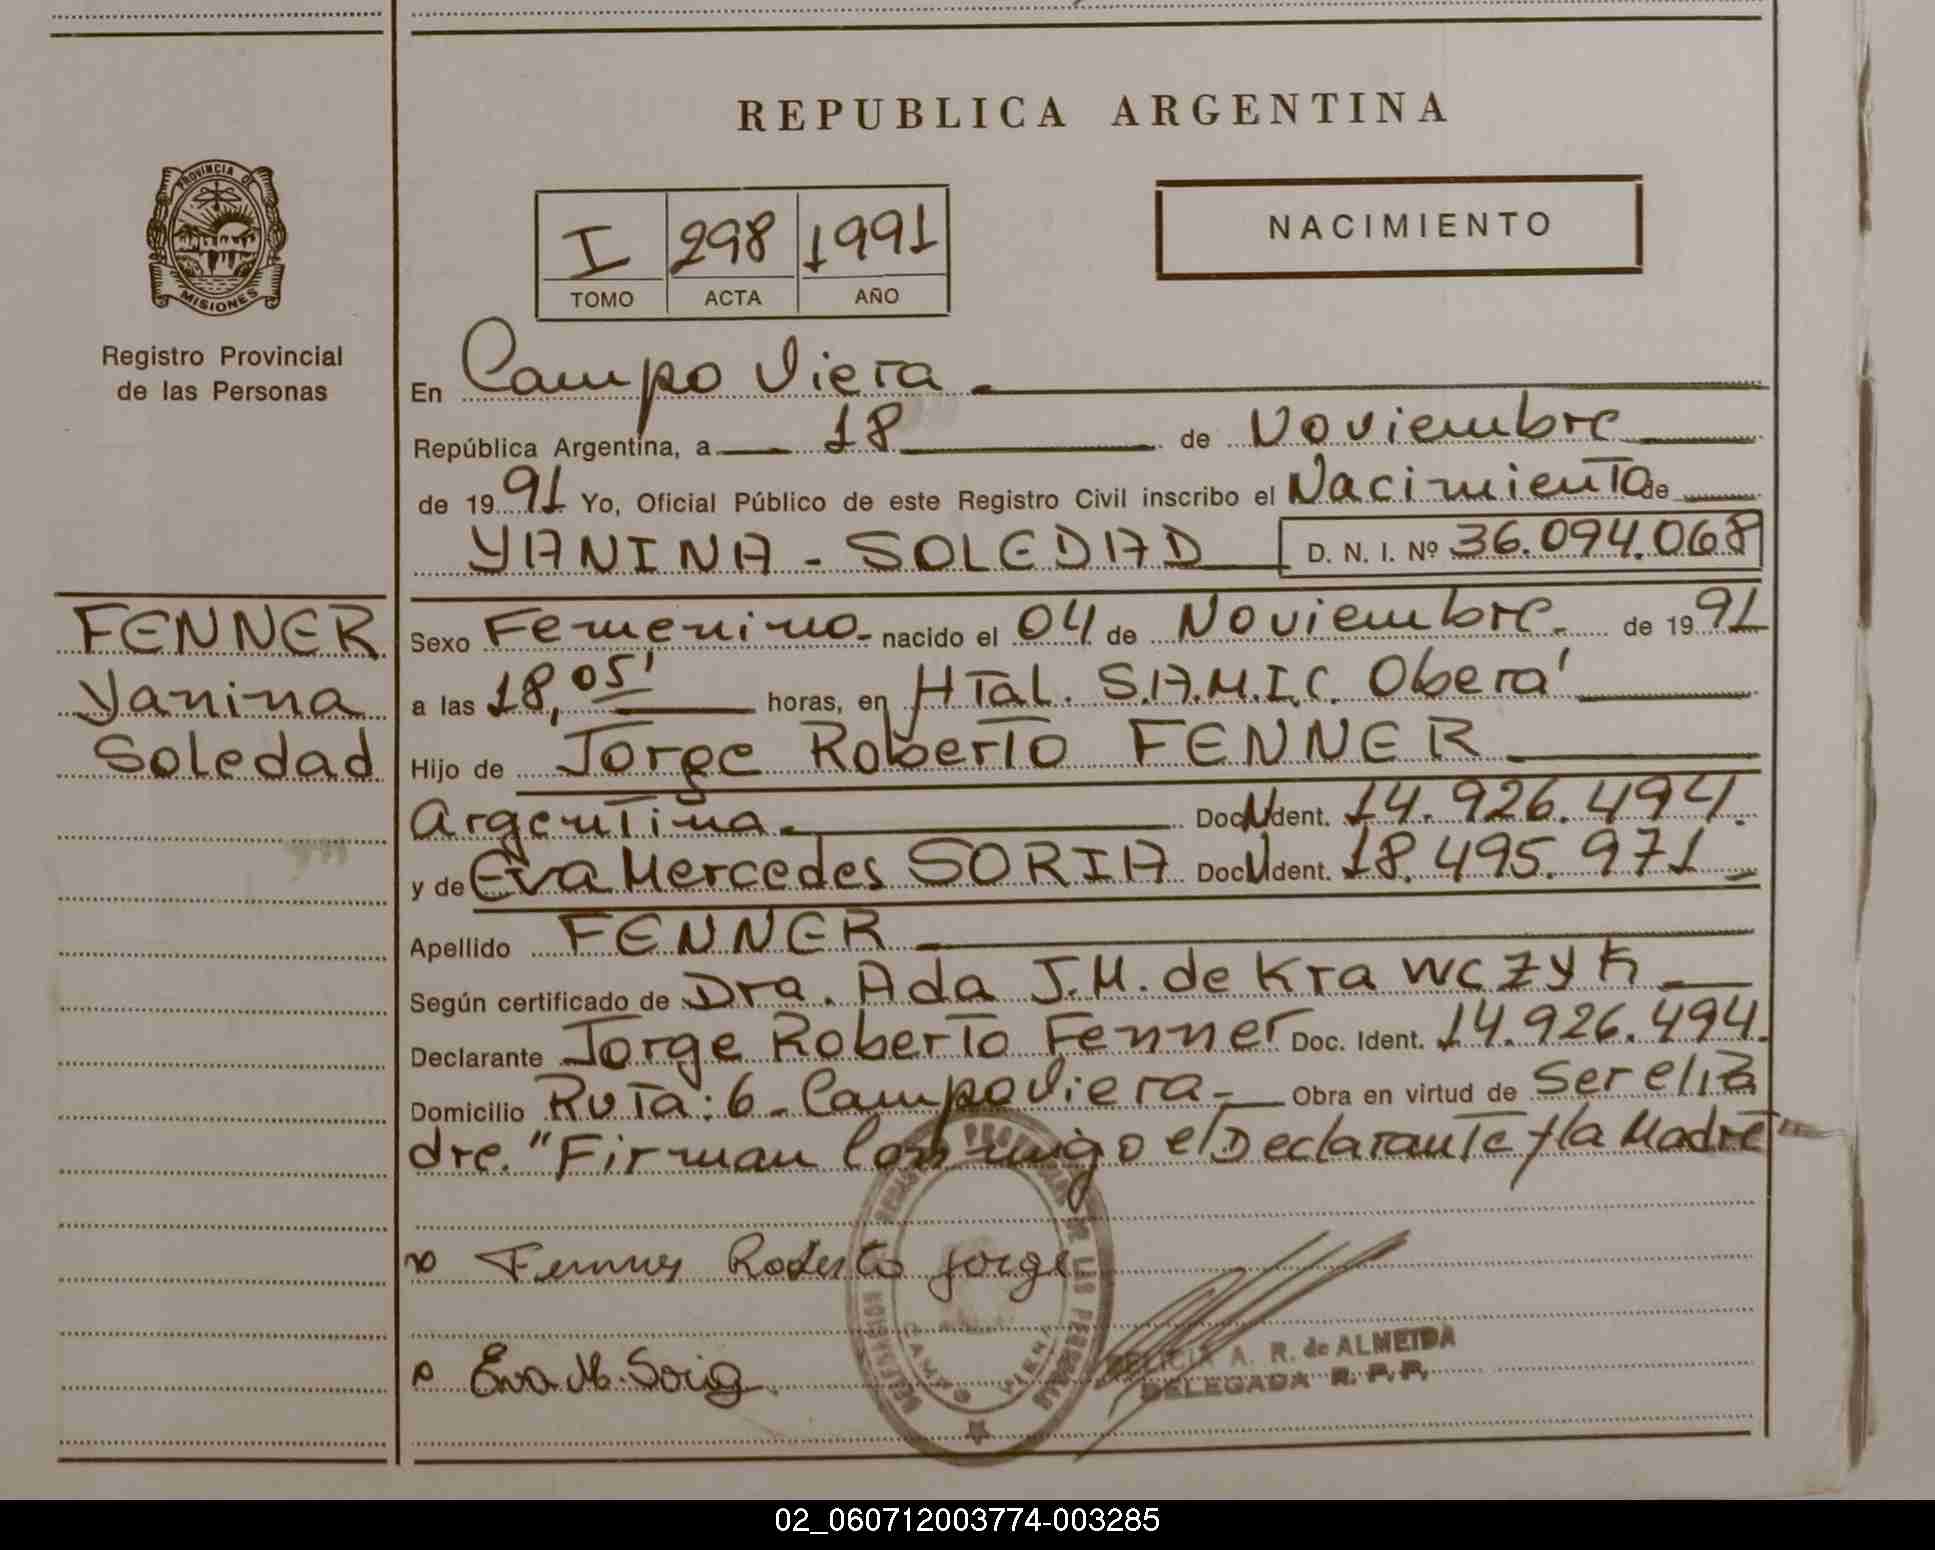 REPUBLICA ARGENTINA
PROVINCIA DE
MISIONES
Registro Provincial
de las Personas
I 298 1991
TOMO ACTA AÑO
NACIMIENTO
En Campo Viera
República Argentina, a 18 de Noviembre
de 1991 Yo, Oficial Público de este Registro Civil inscribo el Nacimiento de
YANINA - SOLEDAD D. N. I. Nº 36.094.068
FENNER
Yanina
Soledad
Sexo Femenino nacido el 04 de Noviembre de 1991
a las 18,05' horas, en HTal. S.A.M.I.C. Oberá
Hijo de Jorge Roberto FENNER
Argentina Doc. Ident. 14.926.494.
y de Eva Mercedes SORIA Doc. Ident. 18.495.971
Apellido FENNER
Según certificado de Dra. Ada J.M. de Krawczyk
Declarante Jorge Roberto Fenner Doc. Ident. 14.926.494.
Domicilio Ruta: 6 - Campo Viera - Obra en virtud de Ser el Pa
dre. "Firman Conmigo el Declarante y la Madre"
Fenner Roberto Jorge
Eva M. Soria
CAMPO VIERA
DELICIA A. R. de ALMEIDA
DELEGADA R. P. P.
02_060712003774-003285